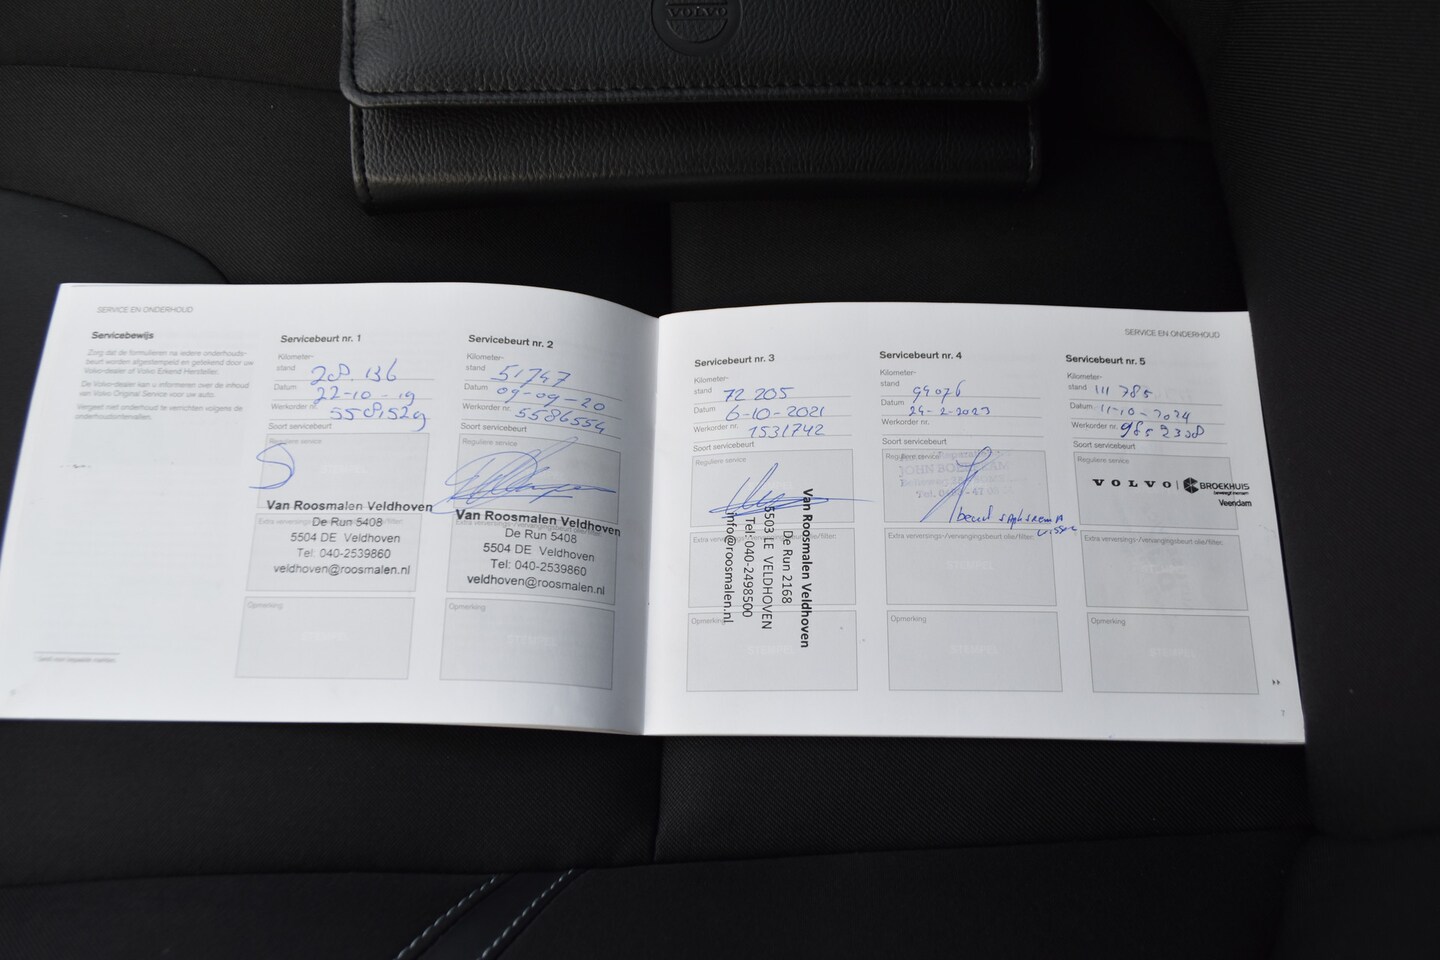 VOLVO
SERVICE EN ONDERHOUD
Servicebewijs
Zorg dat de formulieren na iedere onderhouds-
beurt worden afgestempeld en getekend door uw
Volvo-dealer of Volvo Erkend Hersteller.
De Volvo-dealer kan u informeren over de inhoud
van Volvo Original Service voor uw auto.
Vergeet niet onderhoud te verrichten volgens de
onderhoudsintervallen.
Servicebeurt nr. 1
Kilometer-
stand 28.136
Datum 22-10-19
Werkorder nr. 5581529
Soort servicebeurt
Reguliere service
Van Roosmalen Veldhoven
De Run 5408
5504 DE Veldhoven
Tel: 040-2539860
veldhoven@roosmalen.nl
Opmerking
Servicebeurt nr. 2
Kilometer-
stand 51747
Datum 09-09-20
Werkorder nr. 5586554
Soort servicebeurt
Reguliere service
Van Roosmalen Veldhoven
De Run 5408
5504 DE Veldhoven
Tel: 040-2539860
veldhoven@roosmalen.nl
Opmerking
SERVICE EN ONDERHOUD
Servicebeurt nr. 3
Kilometer-
stand 72 205
Datum 6-10-2021
Werkorder nr. 1531742
Soort servicebeurt
Reguliere service
Extra verversings-/vervangingsbeurt olie/filter.
Van Roosmalen Veldhoven
De Run 2168
5503 LE VELDHOVEN
Tel:040-2498500
info@roosmalen.nl
Opmerking
Servicebeurt nr. 4
Kilometer-
stand 94076
Datum 24-2-2023
Werkorder nr.
Soort servicebeurt
Reguliere service
Extra verversings-/vervangingsbeurt olie/filter.
Opmerking
Servicebeurt nr. 5
Kilometer-
stand 111 785
Datum 11-10-2024
Werkorder nr. 9852308
Soort servicebeurt
Reguliere service
VOLVO | BROEKHUIS
Veendam
Extra verversings-/vervangingsbeurt olie/filter.
Opmerking
7